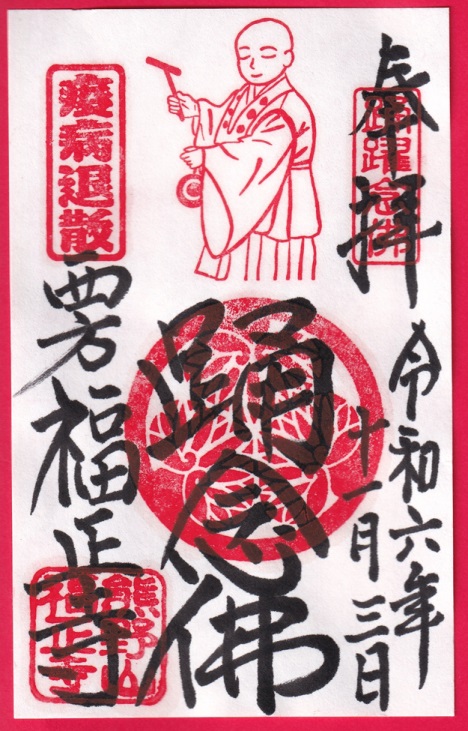 奉拝
踊躍念佛
令和六年
十一月三日
踊念佛
疫病退散
西方福正寺
熊野山
福正寺